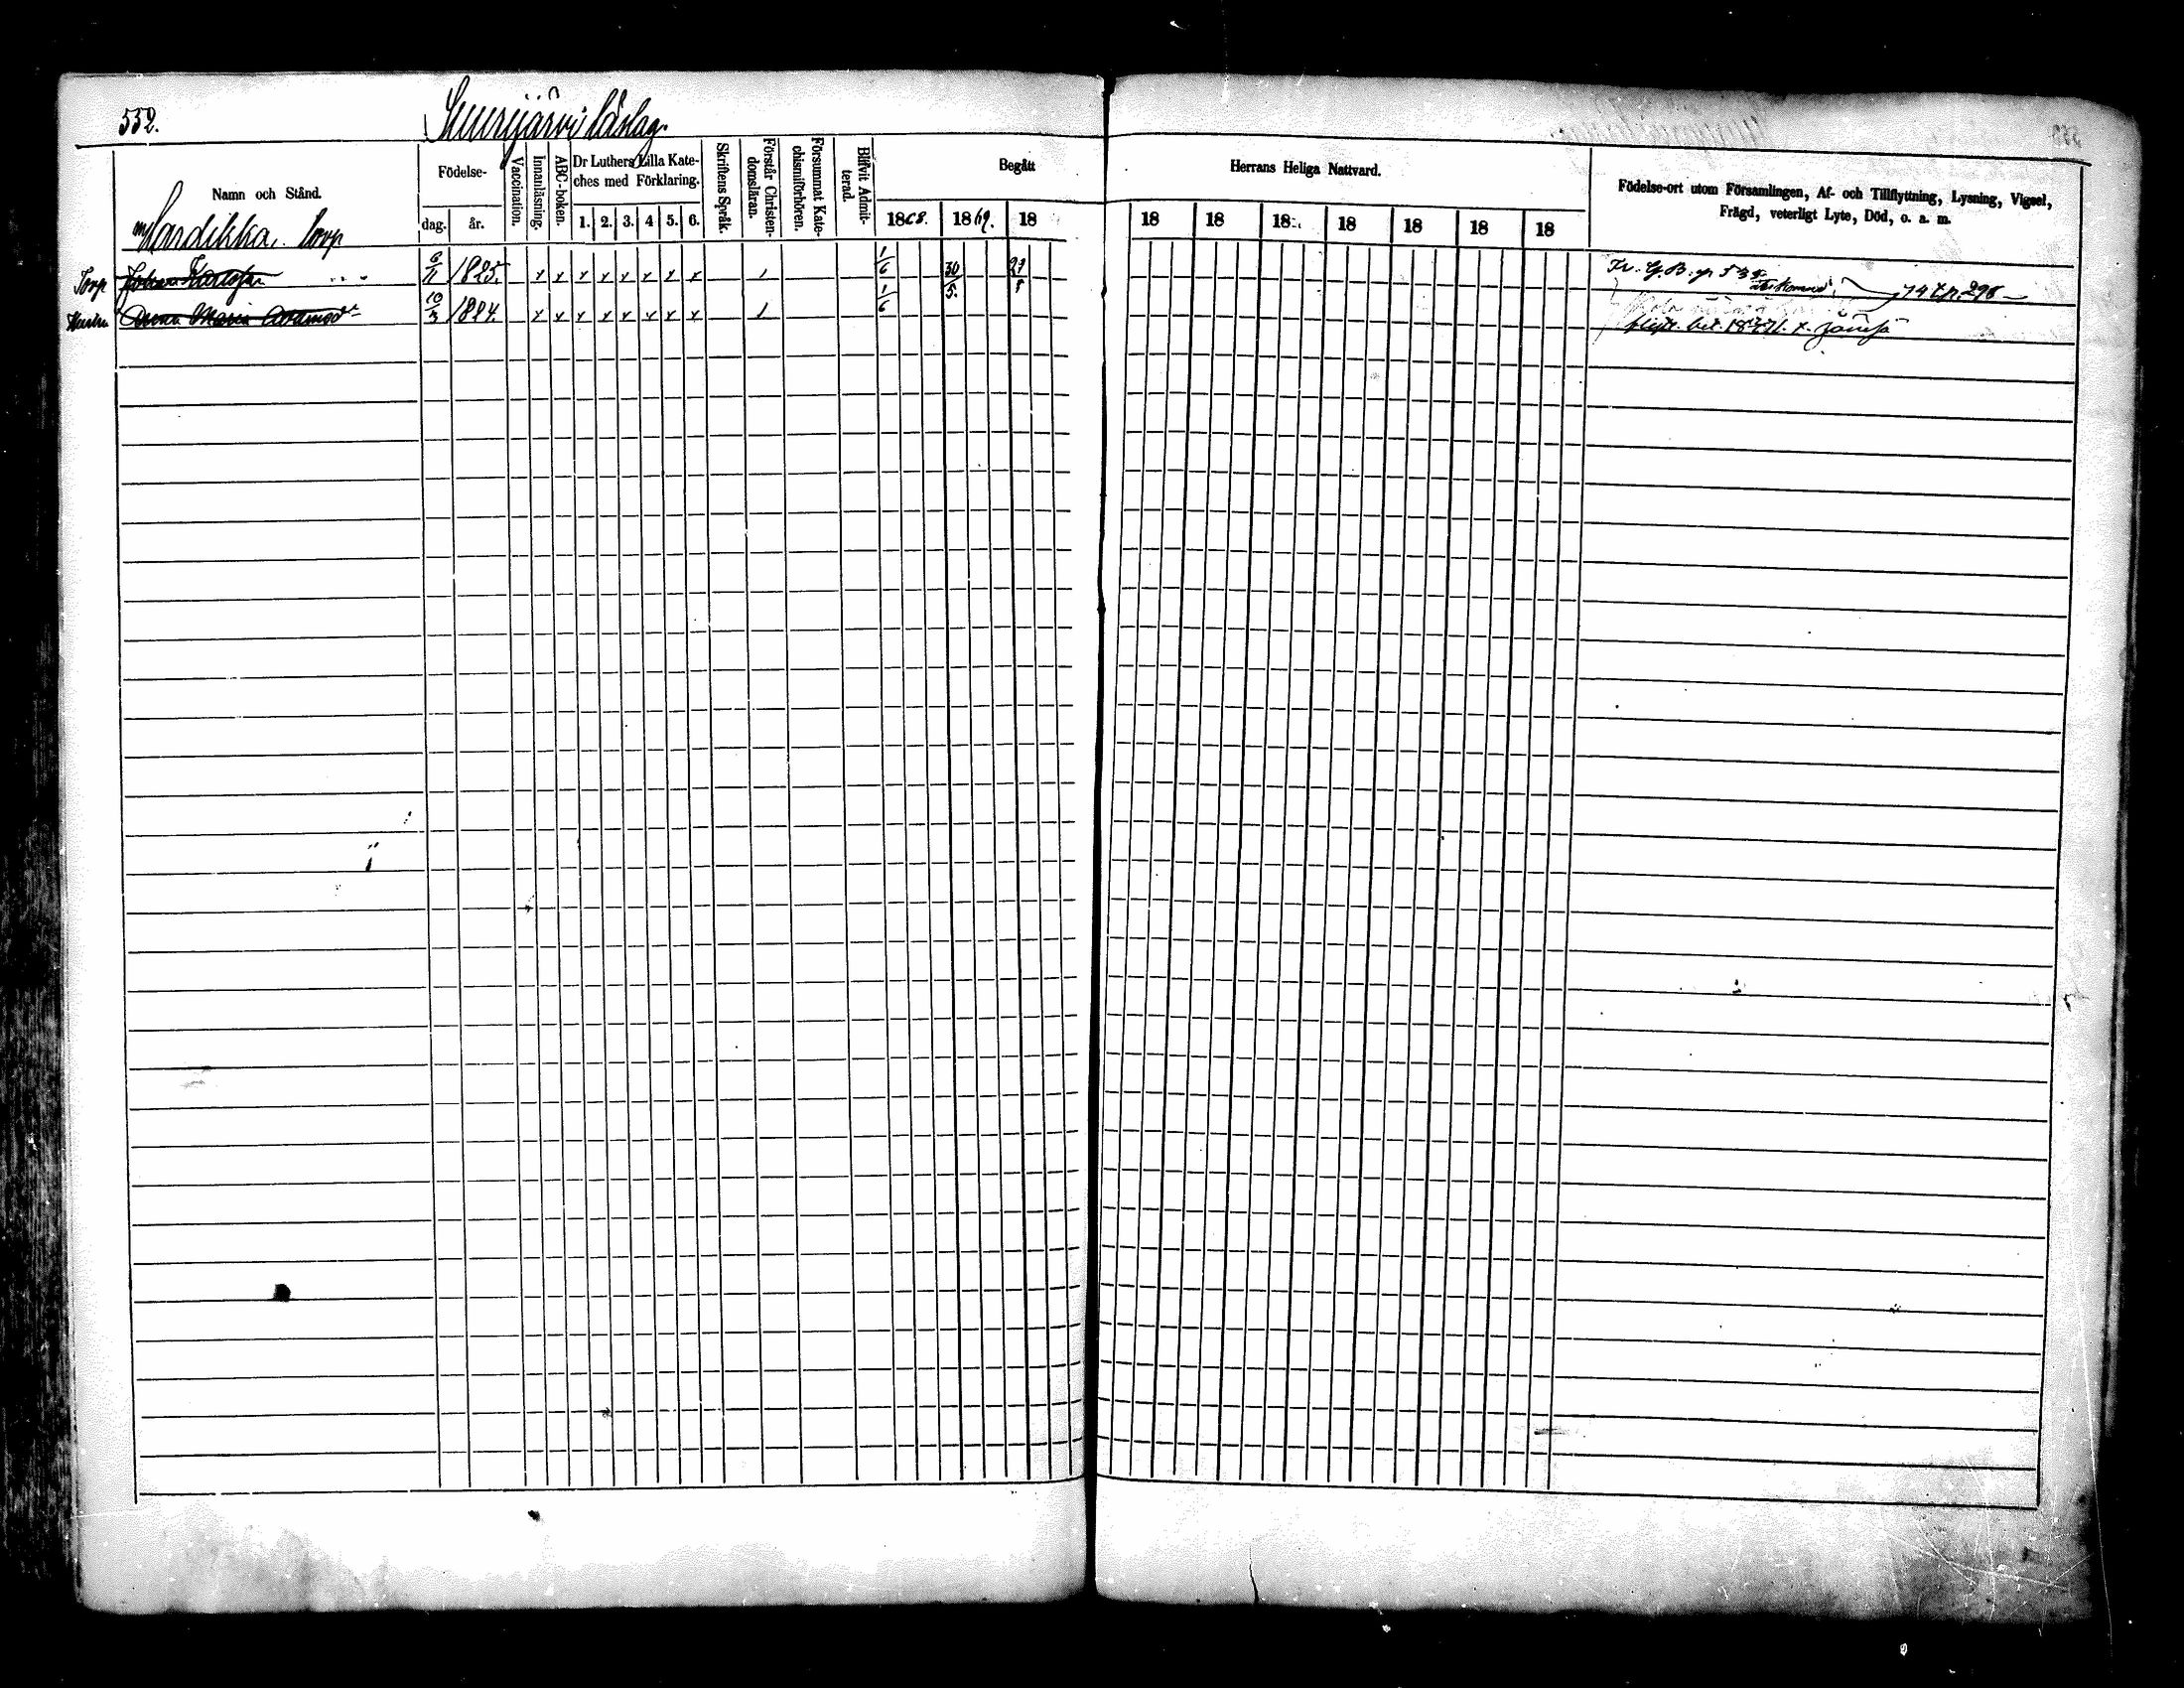 552.
Suurijärvi låslag.
Namn och Stånd.
Födelse-
dag. år.
Vaccination.
Innanläsning.
ABC-boken.
Dr Luthers Lilla Kate-
ches med Förklaring.
1. 2. 3. 4 5. 6.
Skriftens Språk.
Förstår Christen-
domsläran.
Försummat Kate-
chismiförhören.
Blifvit Admit-
terad.
Begått
1868. 1869. 18
Herrans Heliga Nattvard.
18 18 18 18 18 18 18
Födelse-ort utom Församlingen, Af- och Tillflyttning, Lysning, Vigsel,
Frägd, veterligt Lyte, Död, o. a. m.
torp
Torp Johan Karlsson 6/11 1825. x x x x x x x x 1/6 30/5. Fr. G. B. p
Hustru Anna Maria 10/3 x x x x x x x x 1/6 p. 298
Jämsä